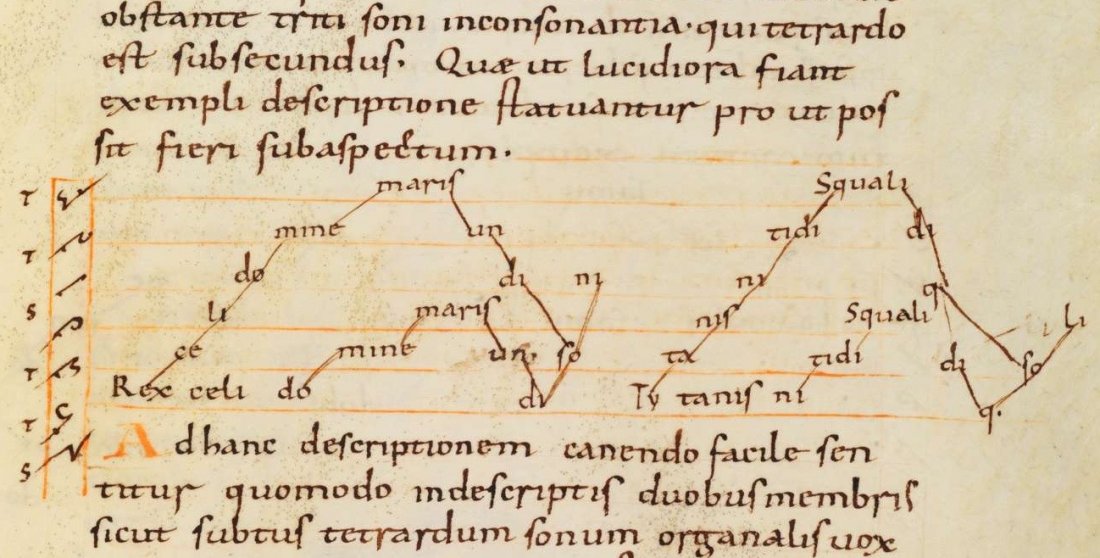 obstante triti soni inconsonantia· qui tetrardo
est subsecundus. Quæ ut lucidiora fiant
exempli descriptione statuantur pro ut pos
sit fieri subaspectum.
T maris Squali
T mine un tidi di
do di ni ni q
S li maris nis Squali li
T ce mine un. so ta tidi di so
Rex celi do di Ty tanis ni q.
T
S
Ad hanc descriptionem canendo facile sen
titur quomodo indescriptis duobus membris
sicut subtus tetrardum sonum organalis vox